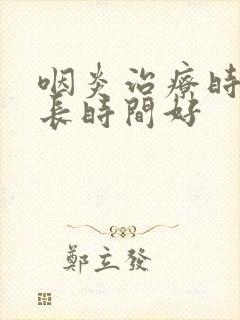 咽炎治療時
長時間好
鄭立發